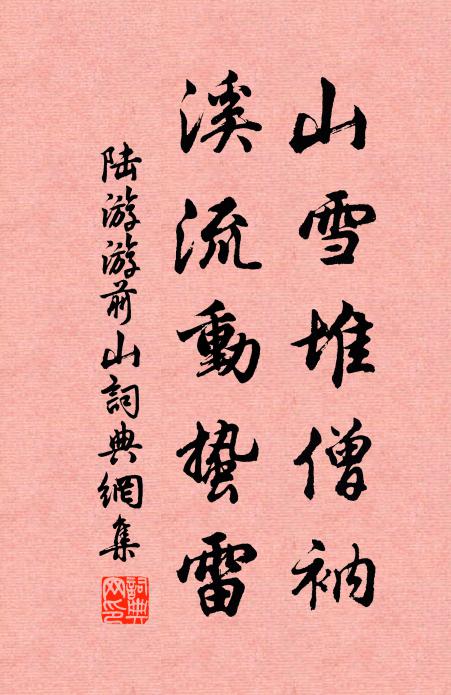 山雪堆僧衲
溪流動蟄雷
陆游游前山詞典網集
詞典网印